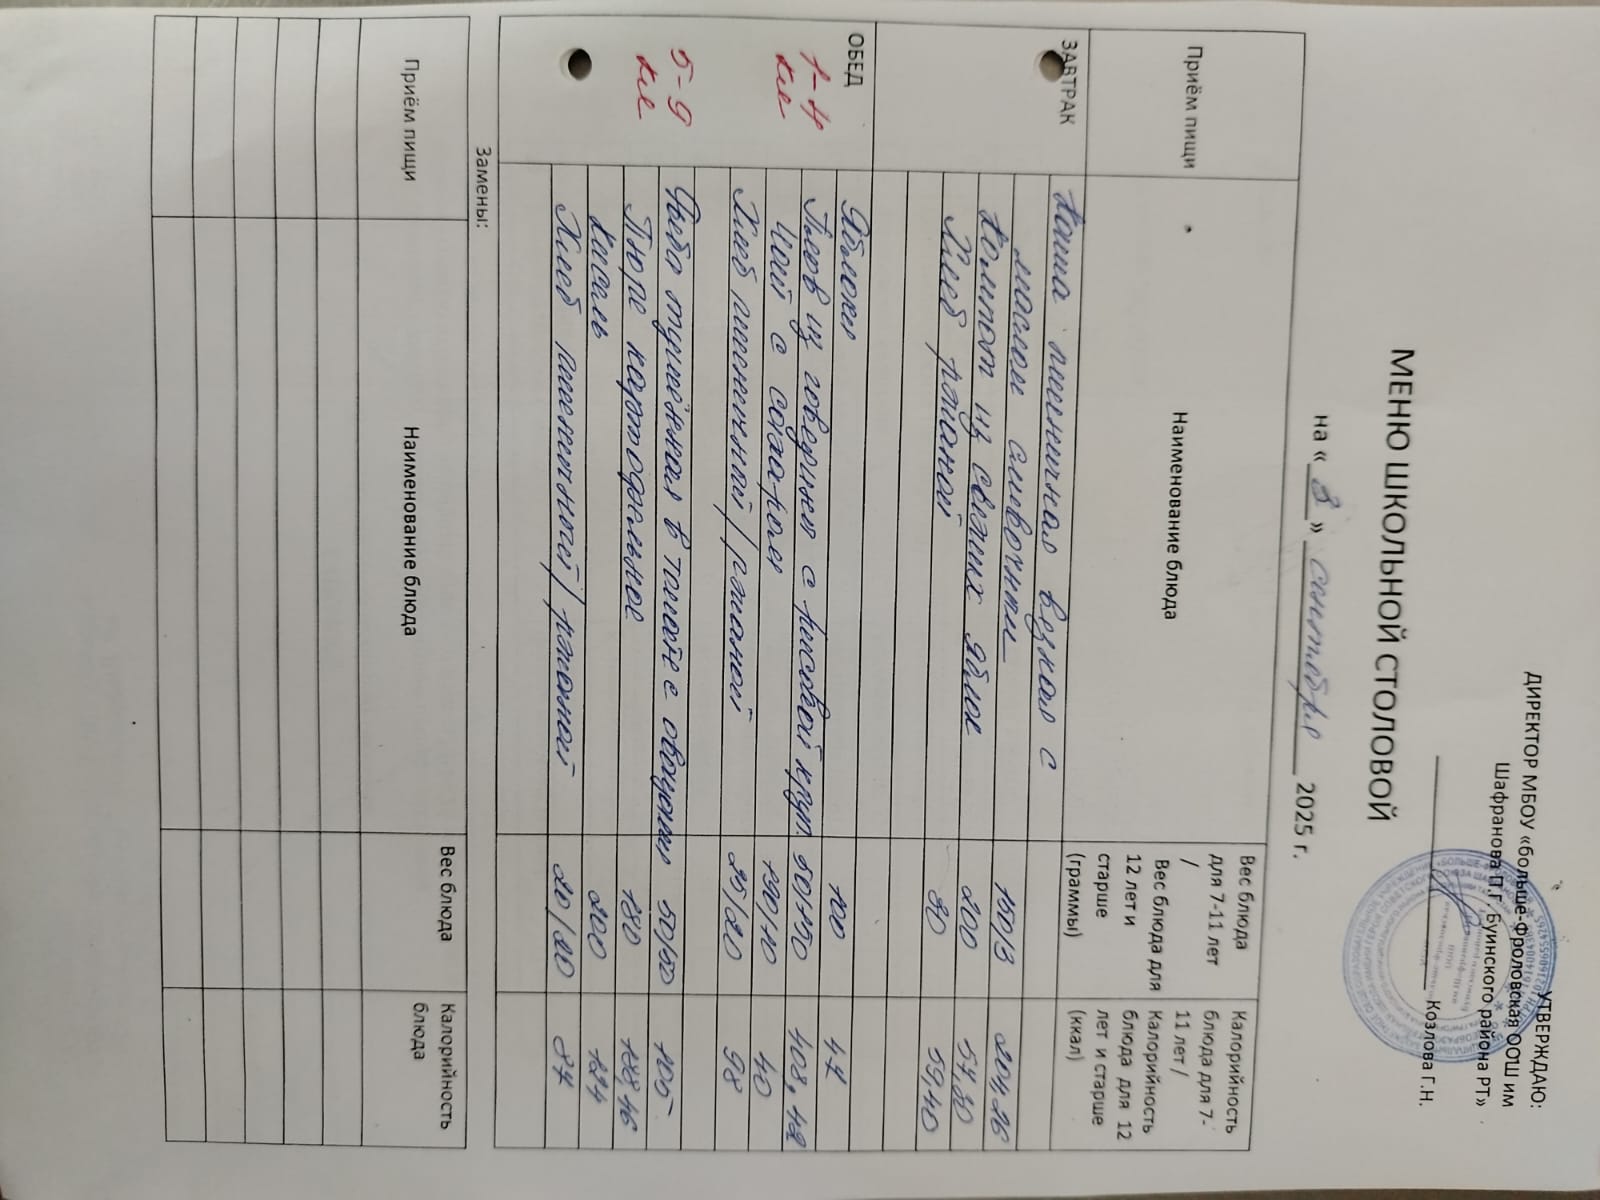 УТВЕРЖДАЮ:
ДИРЕКТОР МБОУ «больше-фроловская ООШ им
Шафранова П.Г. Буинского района РТ»
Козлова Г.Н.
МЕНЮ ШКОЛЬНОЙ СТОЛОВОЙ
на « 8 » сентября 2025 г.
Приём пищи Наименование блюда Вес блюда для 7-11 лет / Вес блюда для 12 лет и старше (граммы) Калорийность блюда для 7-11 лет / Калорийность блюда для 12 лет и старше (ккал)
ЗАВТРАК Каша пшеничная вязкая с
маслом сливочным 150/3 204,26
Компот из свежих яблок 200 57,30
Хлеб ржаной 30 59,40
ОБЕД Яблоки 100 47
1-4 кл Плов из говядины с рисовой круп. 50/150 408,42
Чай с сахаром 190/10 40
Хлеб пшеничный/ржаной 25/20 98
5-9 кл Рыба тушёная в томате с овощами 50/50 105
Пюре картофельное 180 188,46
Кисель 200 124
Хлеб пшеничной/ржаной 20/20 87
Замены:
Приём пищи Наименование блюда Вес блюда Калорийность блюда